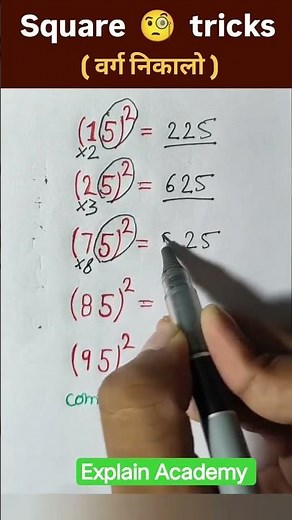 Square 🧐 tricks
( वर्ग निकालो )
(15)² = 225
×2
(25)² = 625
×3
(75)² = 5 25
×8
(85)² =
(95)²
com
Explain Academy